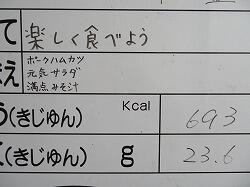 て 楽しく食べよう
え ポークハムカツ
元気サラダ
満点みそ汁
う(きじゅん) Kcal 693
(きじゅん) g 23.6